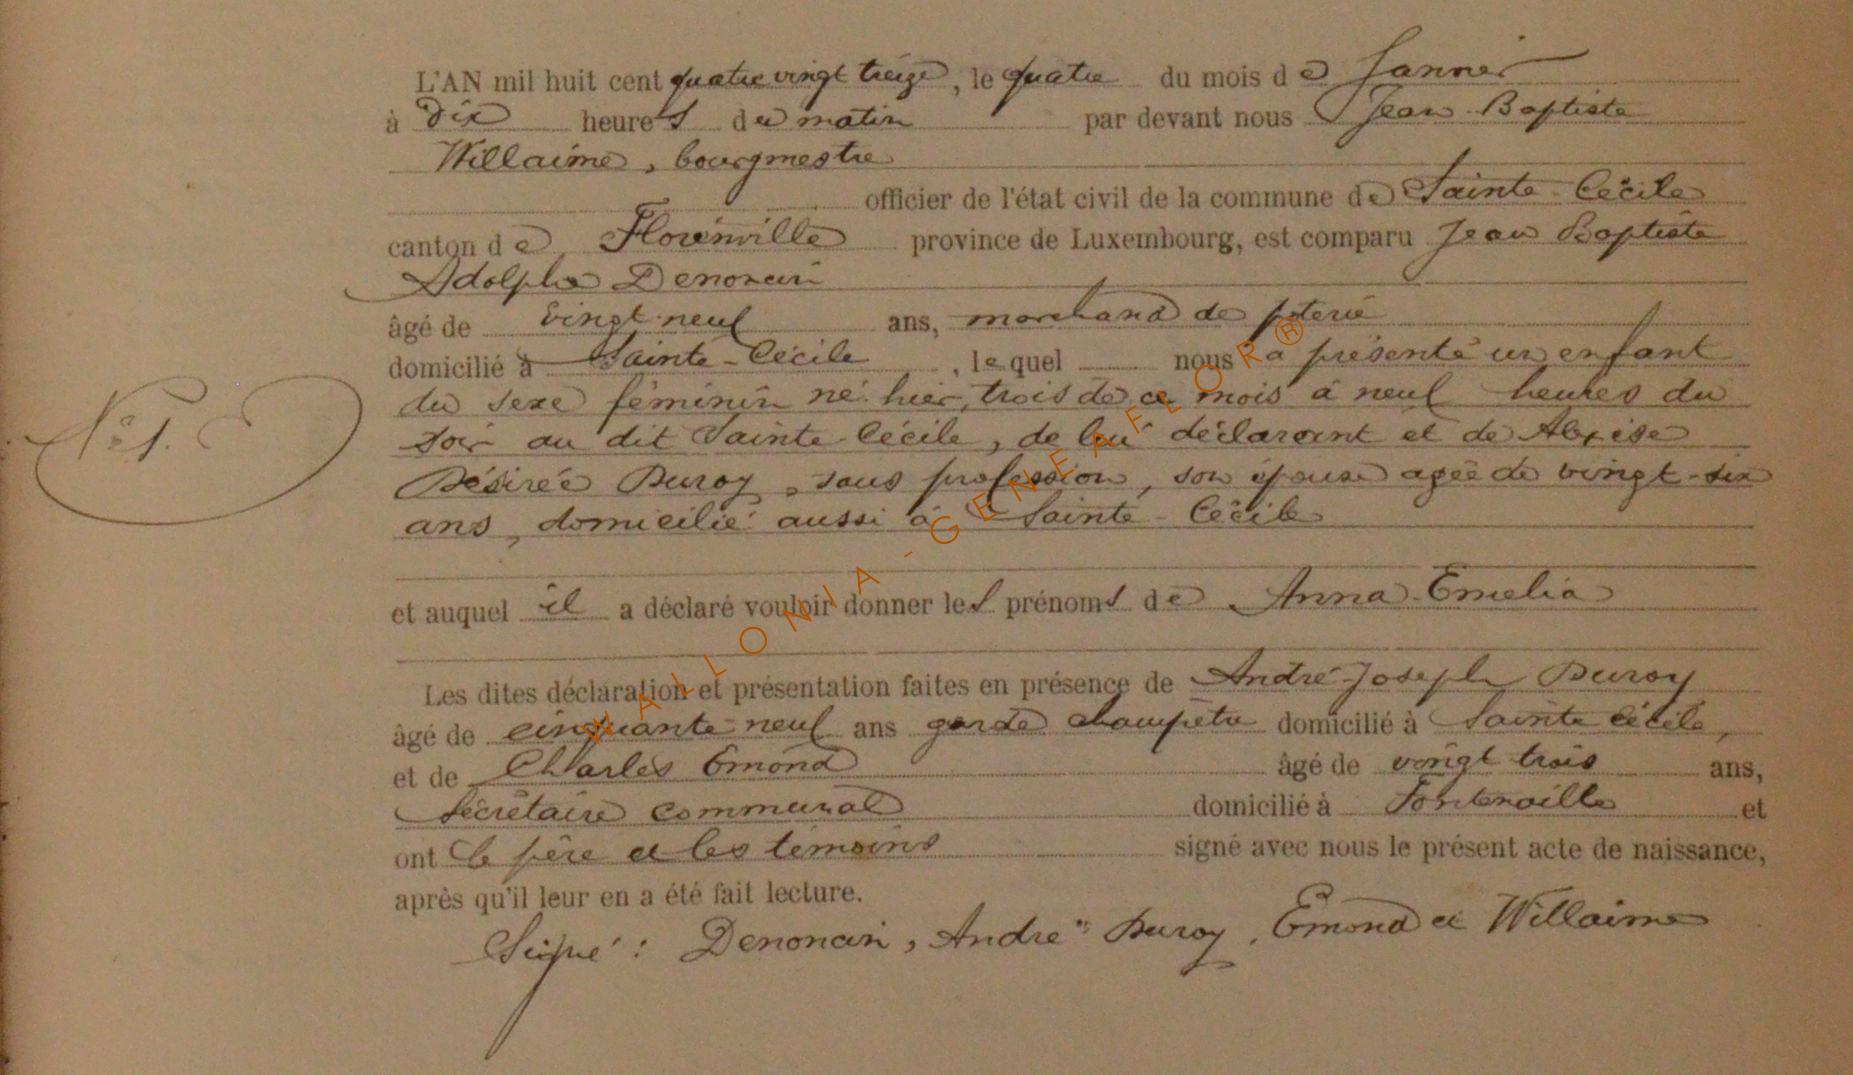 L'AN mil huit cent quatre vingt treize, le quatre du mois de Janvier
à dix heures du matin par devant nous Jean Baptiste
Willaime, bourgmestre
officier de l'état civil de la commune de Sainte-Cécile
canton de Florenville province de Luxembourg, est comparu Jean Baptiste
Adolphe Denoncin
âgé de vingt neuf ans, marchand de poterie
domicilié à Sainte-Cécile, lequel nous a présenté un enfant
du sexe féminin né hier, trois de ce mois à neuf heures du
soir au dit Sainte Cécile, de lui déclarant et de
Désirée Duroy, sans profession, son épouse agée de vingt-six
ans, domicilié aussi à Sainte-Cécile
N° 1.
et auquel il a déclaré vouloir donner les prénoms de Anna-Emelia
Les dites déclaration et présentation faites en présence de André-Joseph Duroy
âgé de cinquante-neuf ans garde champêtre domicilié à Sainte Cécile,
et de Charles Emond âgé de vingt trois ans,
Secrétaire communal domicilié à Fontenoille et
ont le père et les témoins signé avec nous le présent acte de naissance,
après qu'il leur en a été fait lecture.
Signé : Denoncin, André Duroy, Emond et Willaime
WALLONIA-GENEAFLOR®